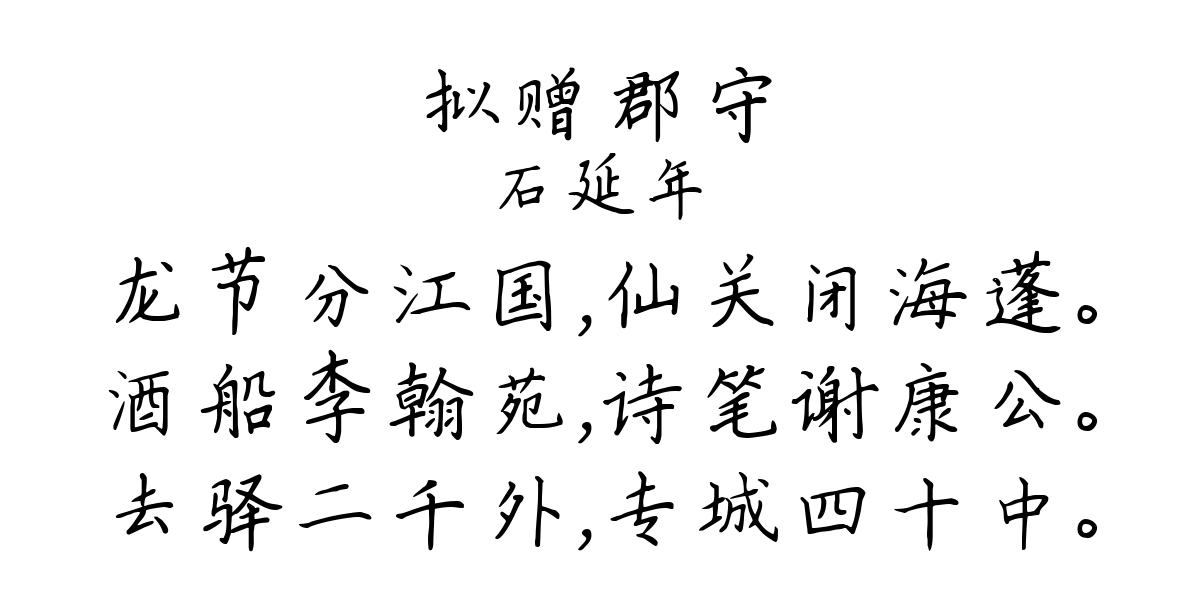 拟赠郡守
石延年
龙节分江国,仙关闭海蓬。
酒船李翰苑,诗笔谢康公。
去驿二千外,专城四十中。